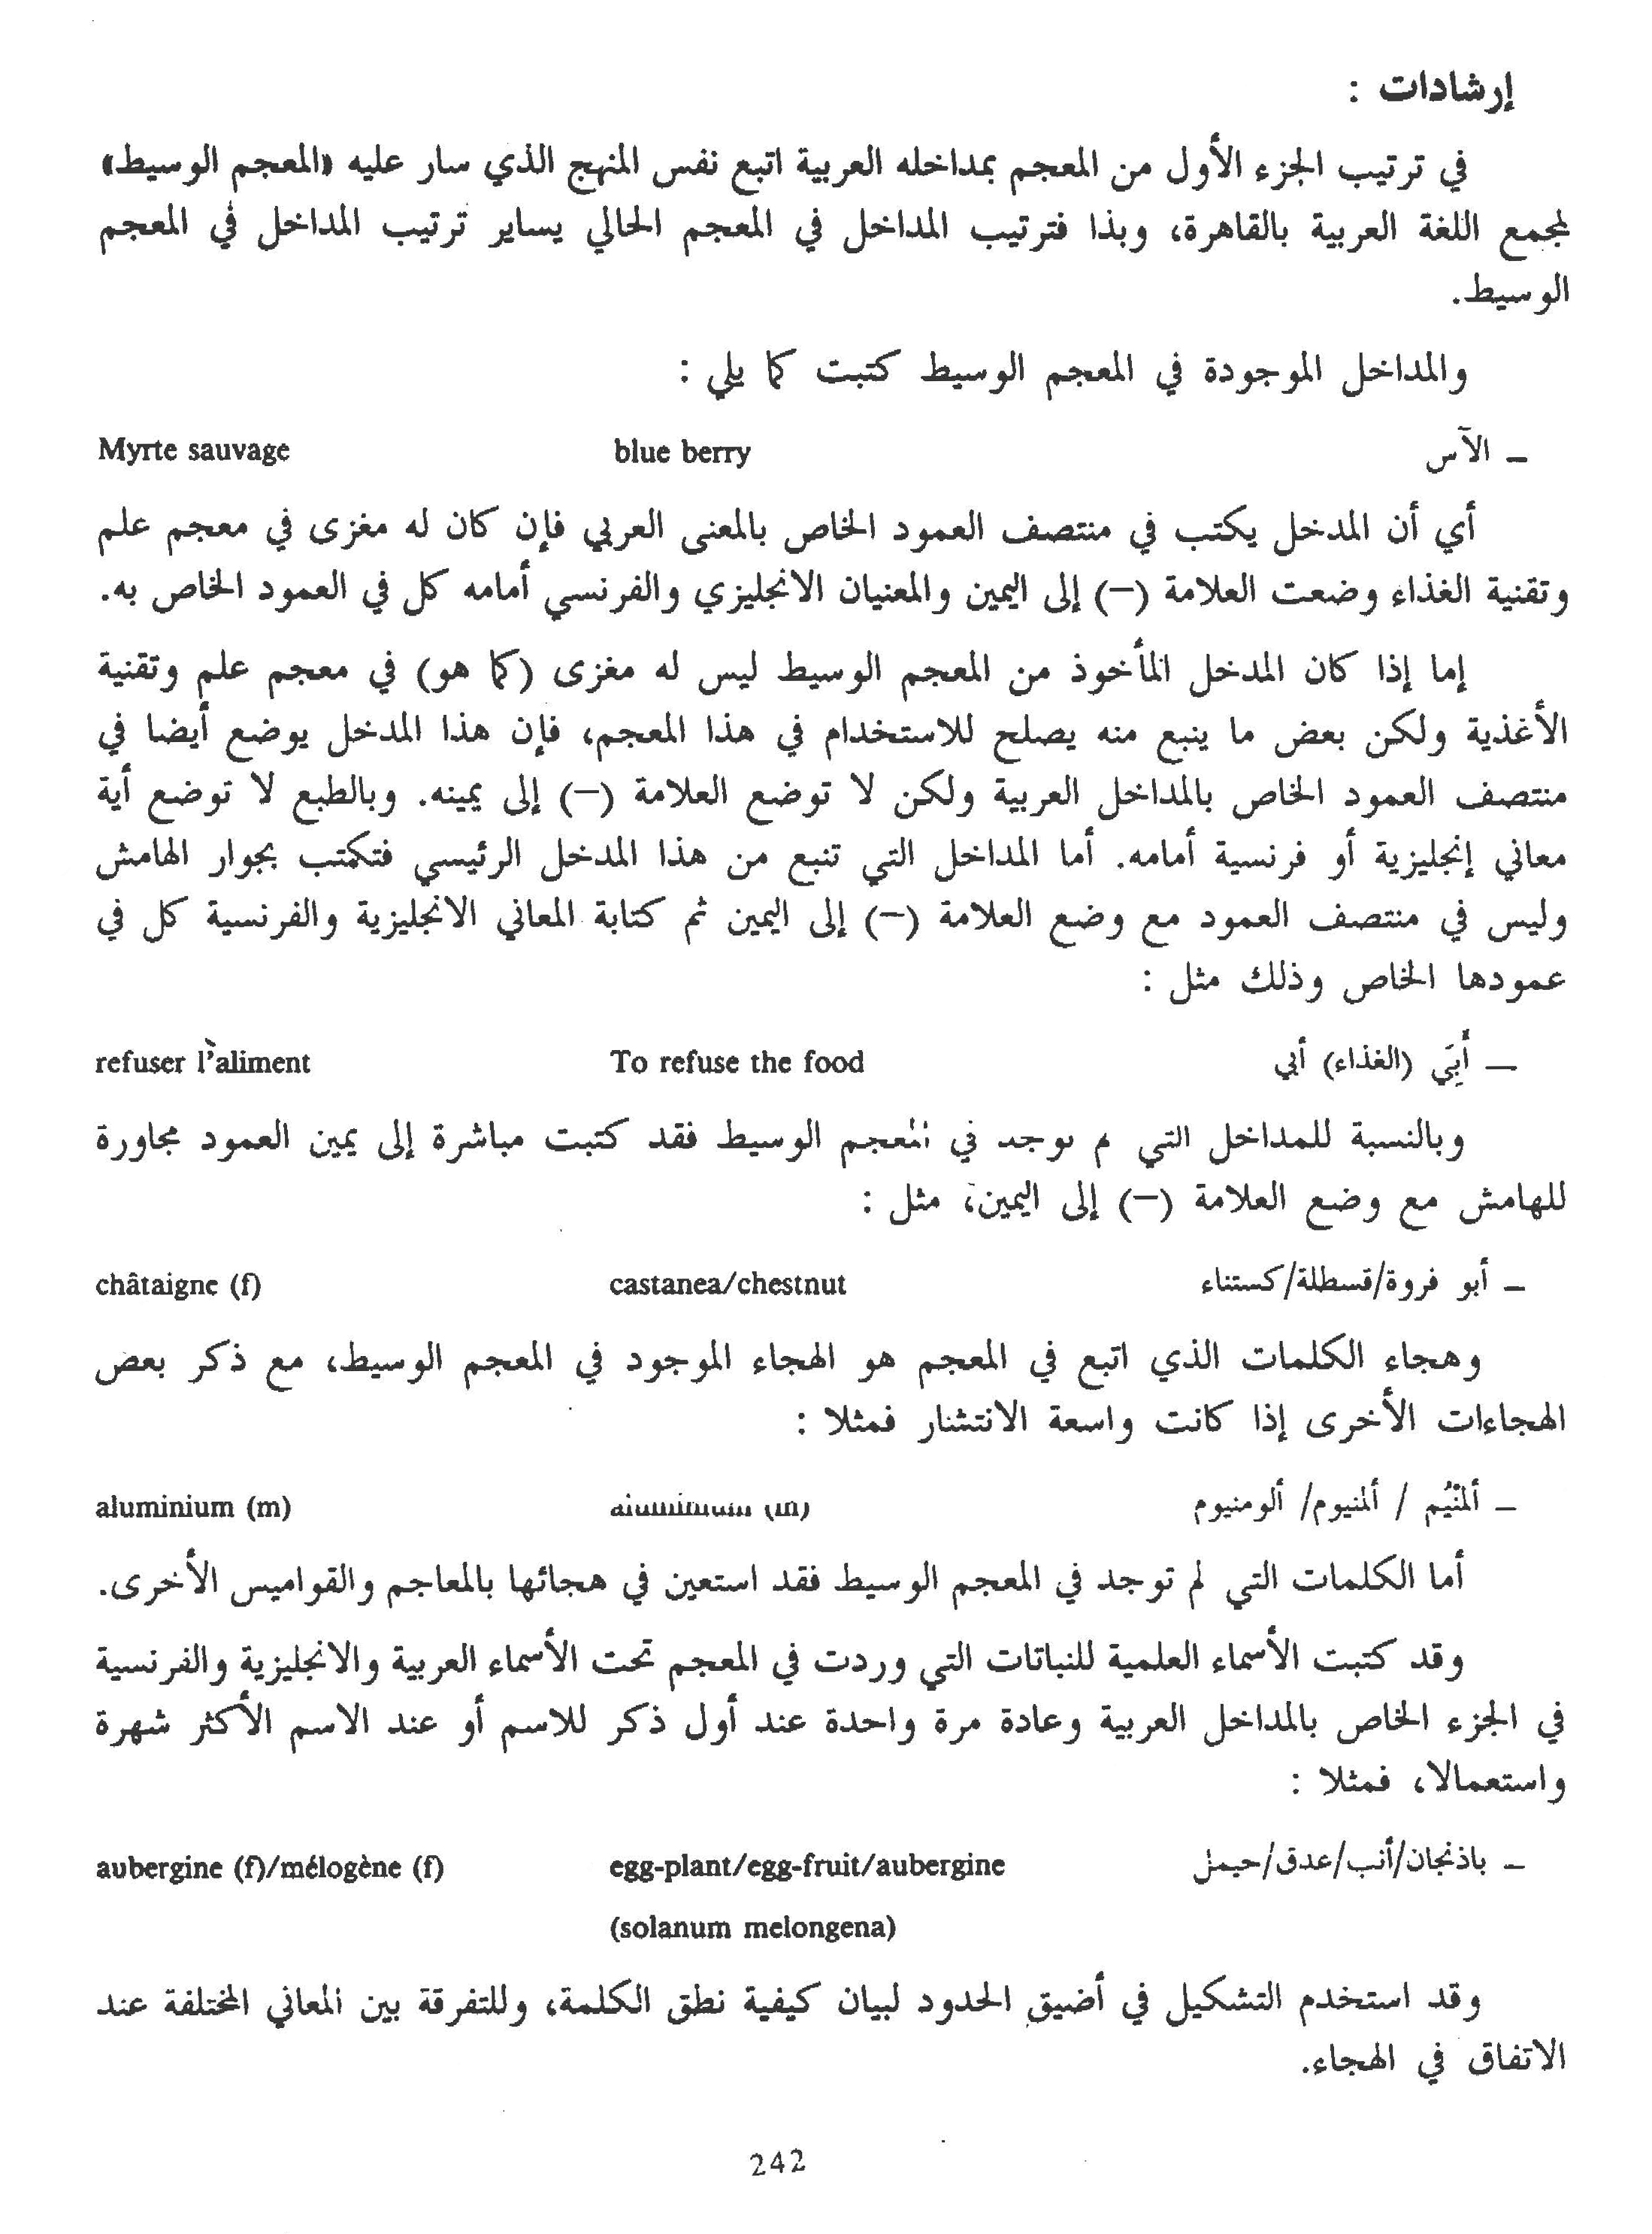 إرشادات :
في ترتيب الجزء الأول من المعجم بمداخله العربية اتبع نفس المنهج الذي سار عليه «المعجم الوسيط»
لمجمع اللغة العربية بالقاهرة، وبذا فترتيب المداخل في المعجم الحالي يساير ترتيب المداخل في المعجم
الوسيط.
والمداخل الموجودة في المعجم الوسيط كتبت كما يلي :
– الآس blue berry Myrte sauvage
أي أن المدخل يكتب في منتصف العمود الخاص بالمعنى العربي فإن كان له مغزى في معجم علم
وتقنية الغذاء وضعت العلامة (–) إلى اليمين والمعنيان الانجليزي والفرنسي أمامه كل في العمود الخاص به.
إما إذا كان المدخل المأخوذ من المعجم الوسيط ليس له مغزى (كما هو) في معجم علم وتقنية
الأغذية ولكن بعض ما ينبع منه يصلح للاستخدام في هذا المعجم، فإن هذا المدخل يوضع أيضا في
منتصف العمود الخاص بالمداخل العربية ولكن لا توضع العلامة (–) إلى يمينه. وبالطبع لا توضع أية
معاني إنجليزية أو فرنسية أمامه. أما المداخل التي تنبع من هذا المدخل الرئيسي فتكتب بجوار الهامش
وليس في منتصف العمود مع وضع العلامة (–) إلى اليمين ثم كتابة المعاني الانجليزية والفرنسية كل في
عمودها الخاص وذلك مثل :
— أَبِيَ (الغذاء) أبي To refuse the food refuser l'aliment
وبالنسبة للمداخل التي لم توجد في المعجم الوسيط فقد كتبت مباشرة إلى يمين العمود مجاورة
للهامش مع وضع العلامة (–) إلى اليمين، مثل :
– أبو فروة/قسطلة/كستناء castanea/chestnut châtaigne (f)
وهجاء الكلمات الذي اتبع في المعجم هو الهجاء الموجود في المعجم الوسيط، مع ذكر بعض
الهجاءات الأخرى إذا كانت واسعة الانتشار فمثلا :
– ألمنْيُم / ألمنيوم/ ألومنيوم (m) aluminium (m)
أما الكلمات التي لم توجد في المعجم الوسيط فقد استعين في هجائها بالمعاجم والقواميس الأخرى.
وقد كتبت الأسماء العلمية للنباتات التي وردت في المعجم تحت الأسماء العربية والانجليزية والفرنسية
في الجزء الخاص بالمداخل العربية وعادة مرة واحدة عند أول ذكر للاسم أو عند الاسم الأكثر شهرة
واستعمالا، فمثلا :
– باذنجان/أنب/عدق/حيمل egg-plant/egg-fruit/aubergine aubergine (f)/mélogène (f)
(solanum melongena)
وقد استخدم التشكيل في أضيق الحدود لبيان كيفية نطق الكلمة، وللتفرقة بين المعاني المختلفة عند
الاتفاق في الهجاء.
242